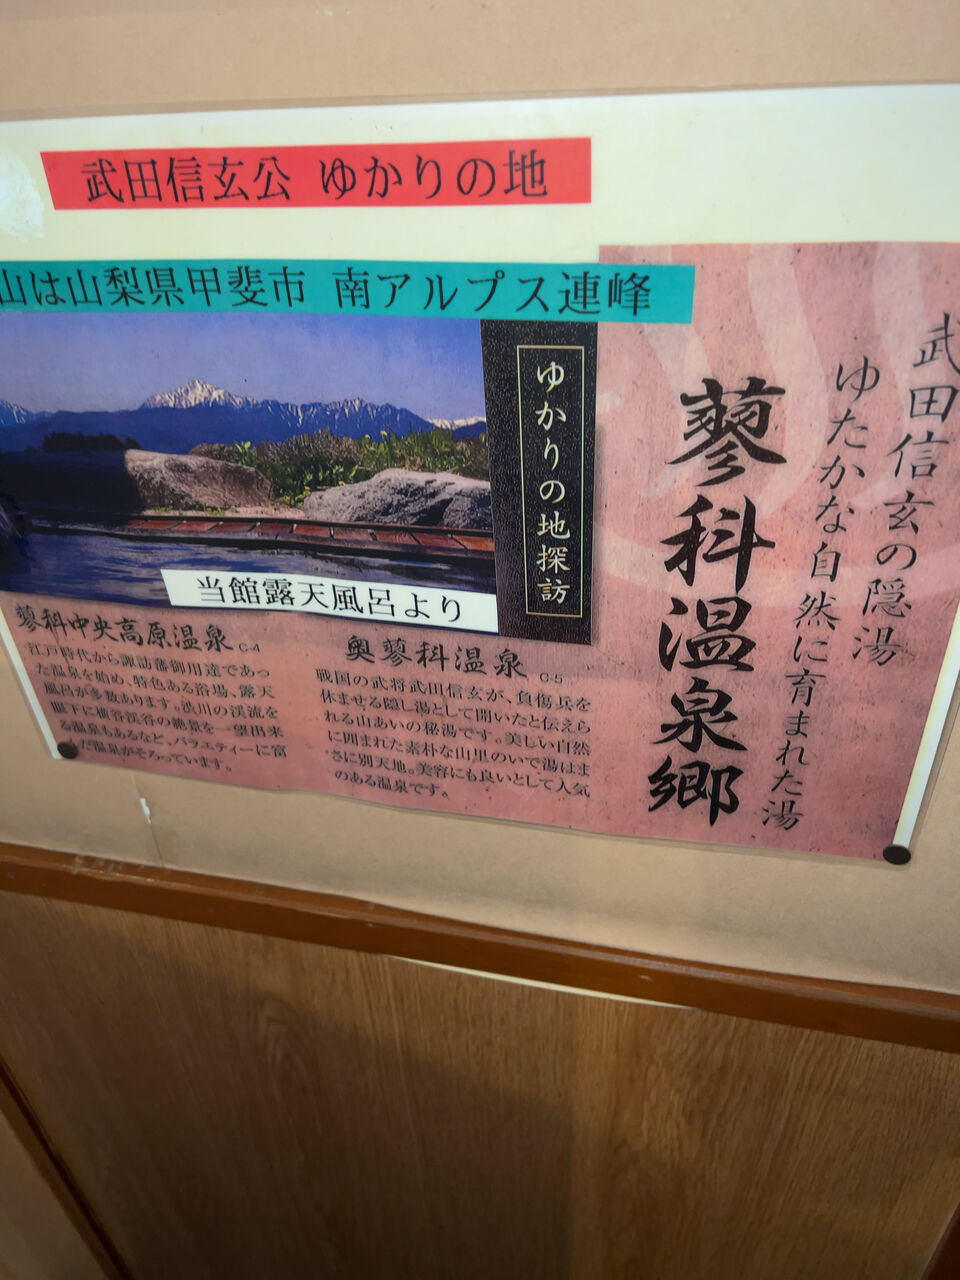 武田信玄公 ゆかりの地
山は山梨県甲斐市 南アルプス連峰
武田信玄の隠湯
ゆたかな自然に育まれた湯
蓼科温泉郷
ゆかりの地探訪
当館露天風呂より
蓼科中央高原温泉 C-4
江戸時代から諏訪藩御用達であっ
た温泉を始め、特色ある浴場、露天
風呂が多数あります。渋川の渓流を
眼下に横谷渓谷の絶景を一望出来
る温泉もあるなど、バラエティーに富
んだ温泉がそろっています。
奥蓼科温泉 C-5
戦国の武将武田信玄が、負傷兵を
休ませる隠し湯として開いたと伝えら
れる山あいの秘湯です。美しい自然
に囲まれた素朴な山里のいで湯はま
さに別天地。美容にも良いとして人気
のある温泉です。